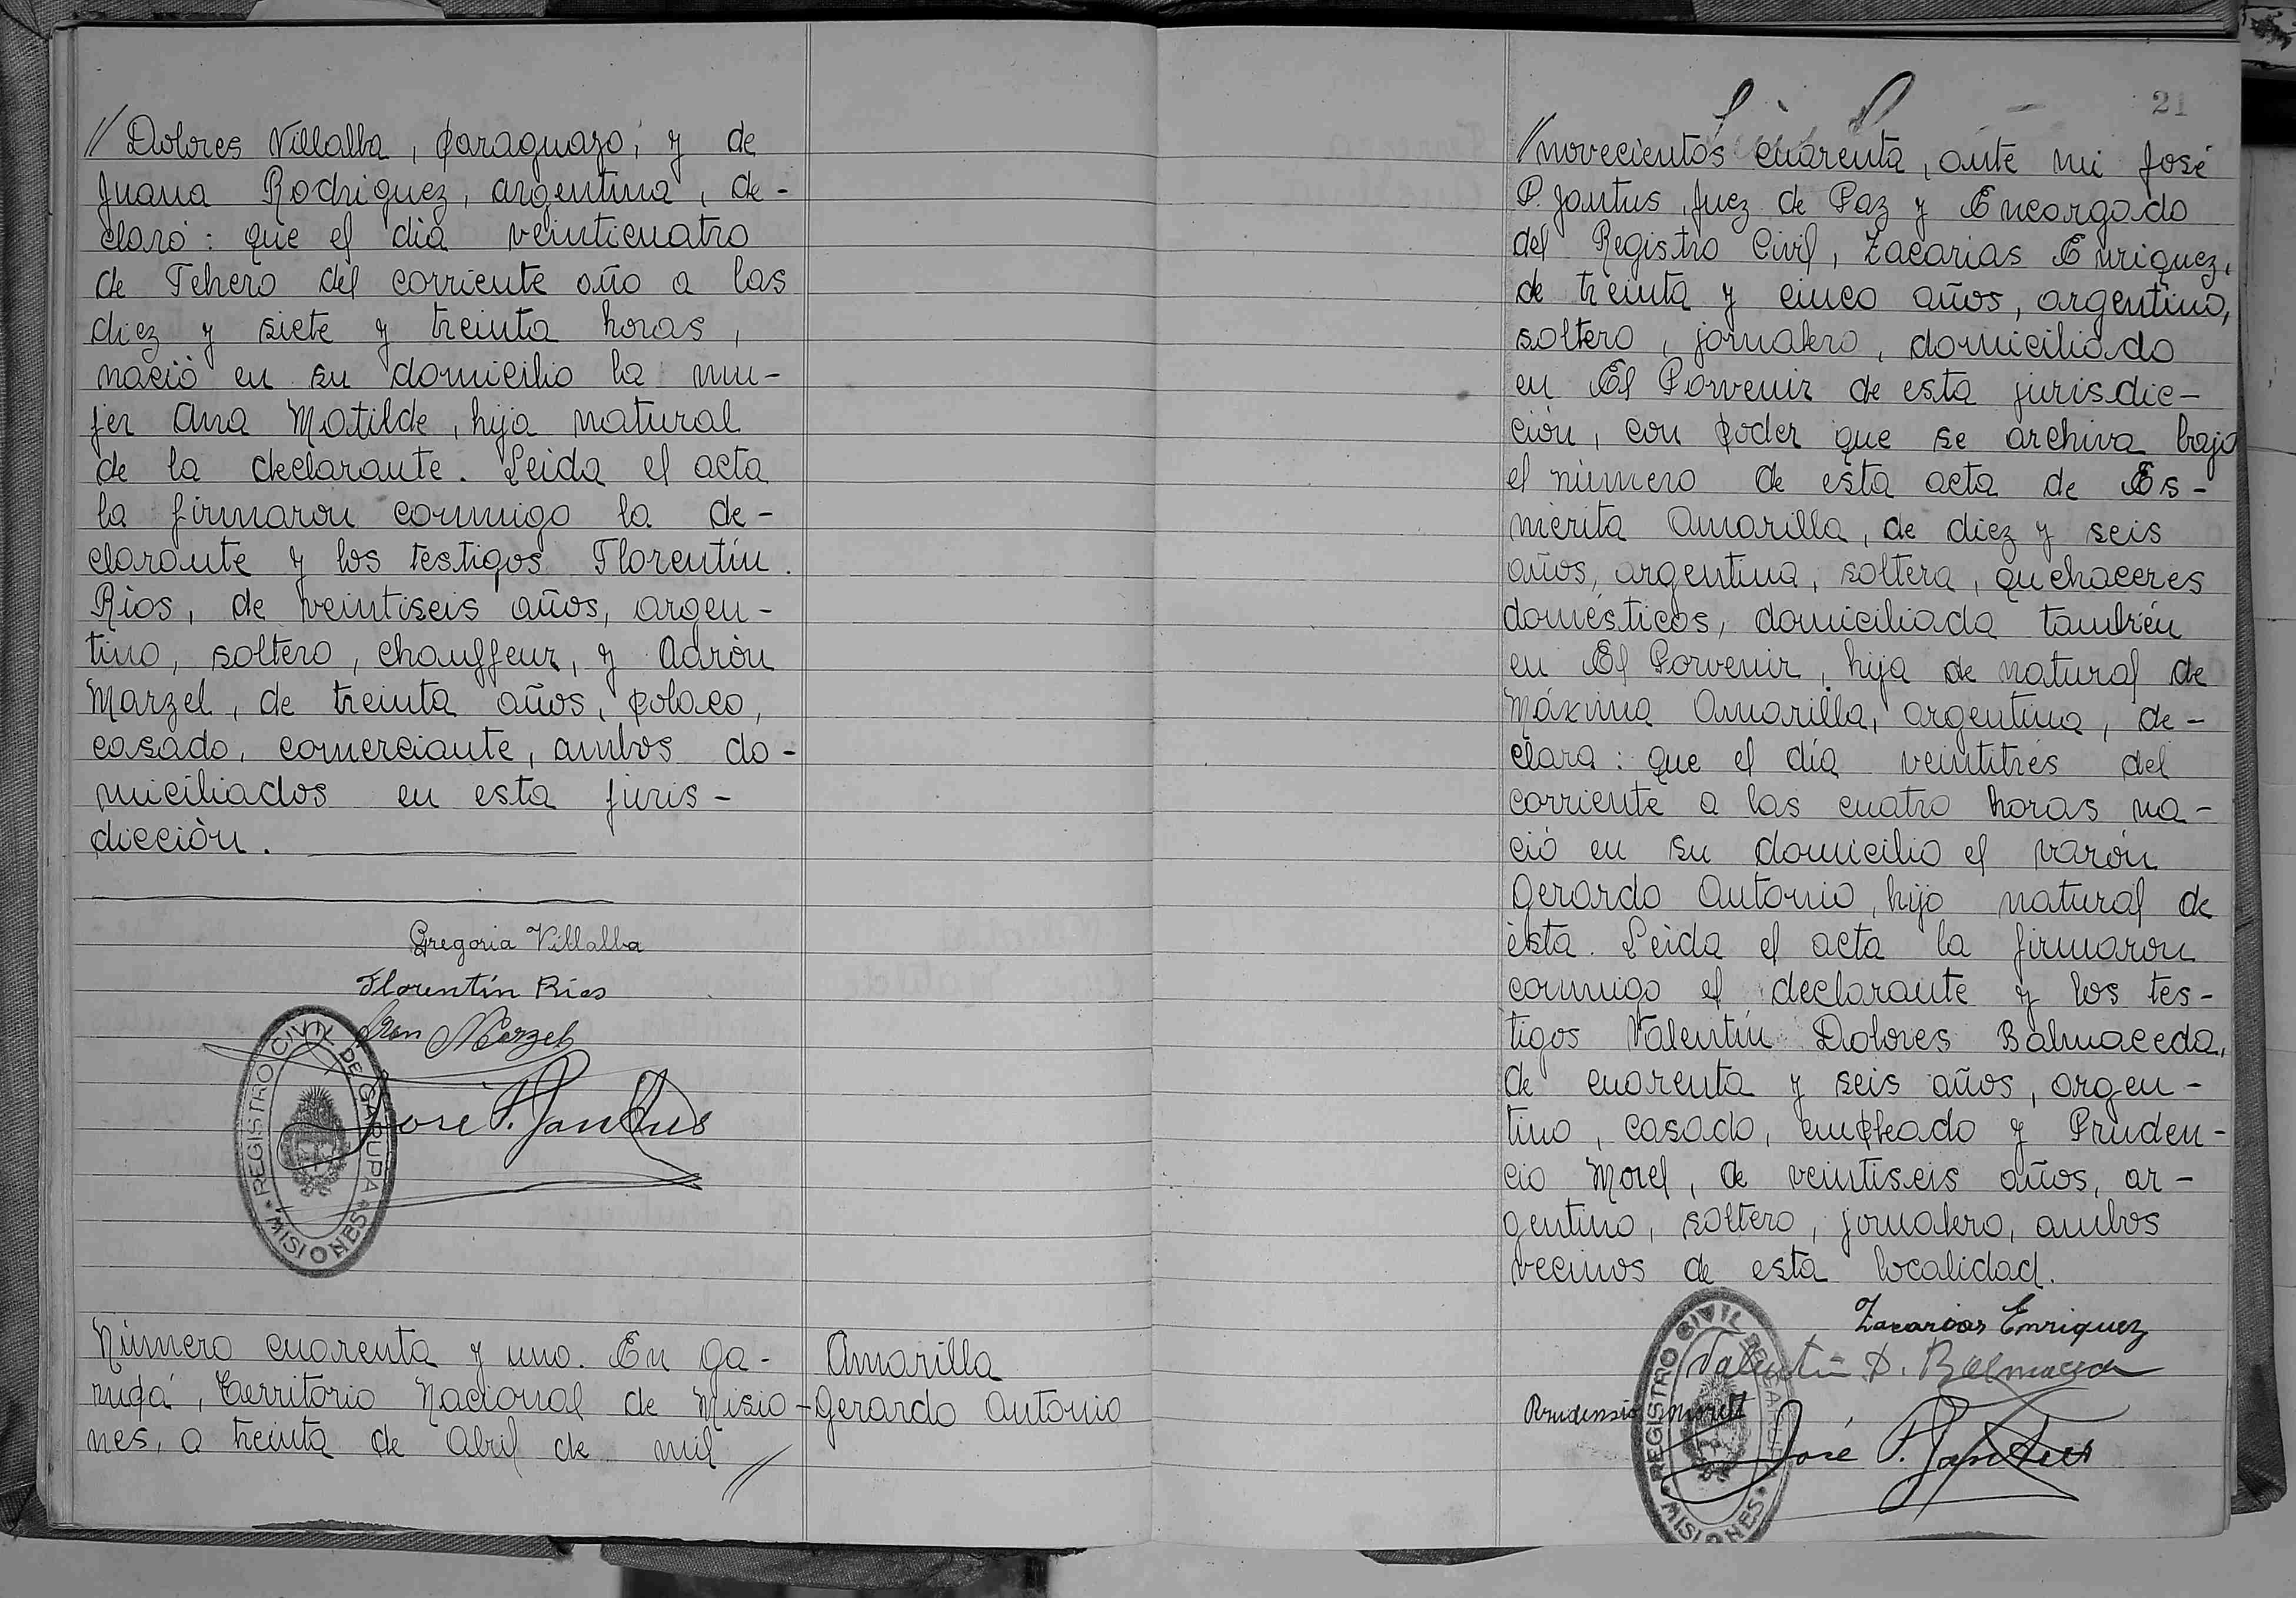 // Dolores Villalba, paraguayo, y de
Juana Rodriguez, argentina, de-
claró: que el día veinticuatro
de Febrero del corriente año a las
diez y siete y treinta horas,
nació en su domicilio la mu-
jer Ana Matilde, hija natural
de la declarante. Leida el acta
la firmaron conmigo la de-
clarante y los testigos Florentín
Ríos, de veintiseis años, argen-
tino, soltero, chauffeur, y Aarón
Marzel, de treinta años, polaco,
casado, comerciante, ambos do-
miciliados en esta juris-
dicción.
Gregoria Villalba
Florentín Ríos
Aron Marzel
José P. Jantus
REGISTRO CIVIL DE GARUPA
* MISIONES *
Número cuarenta y uno. En Ga-
rupá, Territorio Nacional de Misio-
nes, a treinta de Abril de mil //
Amarilla
Gerardo Antonio
21
// novecientos cuarenta, ante mi José
P. Jantus, Juez de Paz y Encargado
del Registro Civil, Zacarias Enriquez,
de treinta y cinco años, argentino,
soltero, jornalero, domiciliado
en El Porvenir de esta jurisdic-
ción, con poder que se archiva bajo
el número de esta acta de Es-
mérita Amarilla, de diez y seis
años, argentina, soltera, quehaceres
domésticos, domiciliada también
en El Porvenir, hija de natural de
Máxima Amarilla, argentina, de-
clara: que el día veintitrés del
corriente a las cuatro horas na-
ció en su domicilio el varón
Gerardo Antonio, hijo natural de
ésta. Leida el acta la firmaron
conmigo el declarante y los tes-
tigos Valentín Dolores Balmaceda,
de cuarenta y seis años, argen-
tino, casado, empleado y Pruden-
cio Morel, de veintiseis años, ar-
gentino, soltero, jornalero, ambos
vecinos de esta localidad.
Zacarias Enriquez
Valentín D. Balmaceda
Prudensio Morel
José P. Jantus
REGISTRO CIVIL DE GARUPA
* MISIONES *